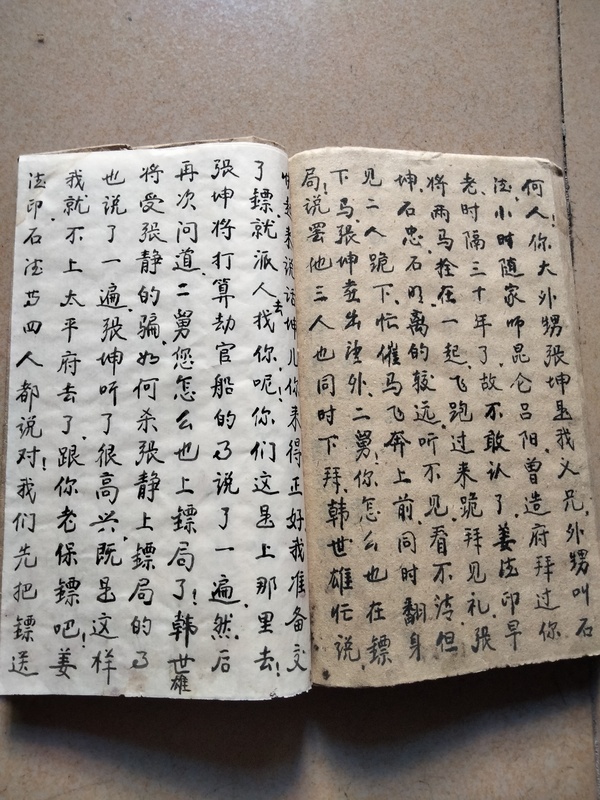 何人!你大外甥張坤是我义兄,外甥叫石
法,小时随家师昆仑吕阳,曾造府拜过你
老,时隔三十年了,故不敢认了,姜法印早
将两马拴在一起,飞跑过来跪拜见礼,張
坤石忠,石明离的较远,听不见看不清,但
见二人跪下,忙催马飞奔上前,同时翻身
下马,張坤出望外,二舅!你怎么也在鏢
局!说罢他三人也同时下拜,韩世雄忙说,
起来说话坤儿你来得正好我准备交
了鏢,就派人去找你呢,你们这是上那里去!
張坤将打算劫官船的事说了一遍,然后
再次问道,二舅您怎么也上鏢局了!韩世雄
将受張静的骗,如何杀張静上鏢局的事
也说了一遍,張坤听了很高兴,既是这样
我就不上太平府去了,跟你老保鏢吧!姜
法印石法等四人都说对!我们先把鏢送